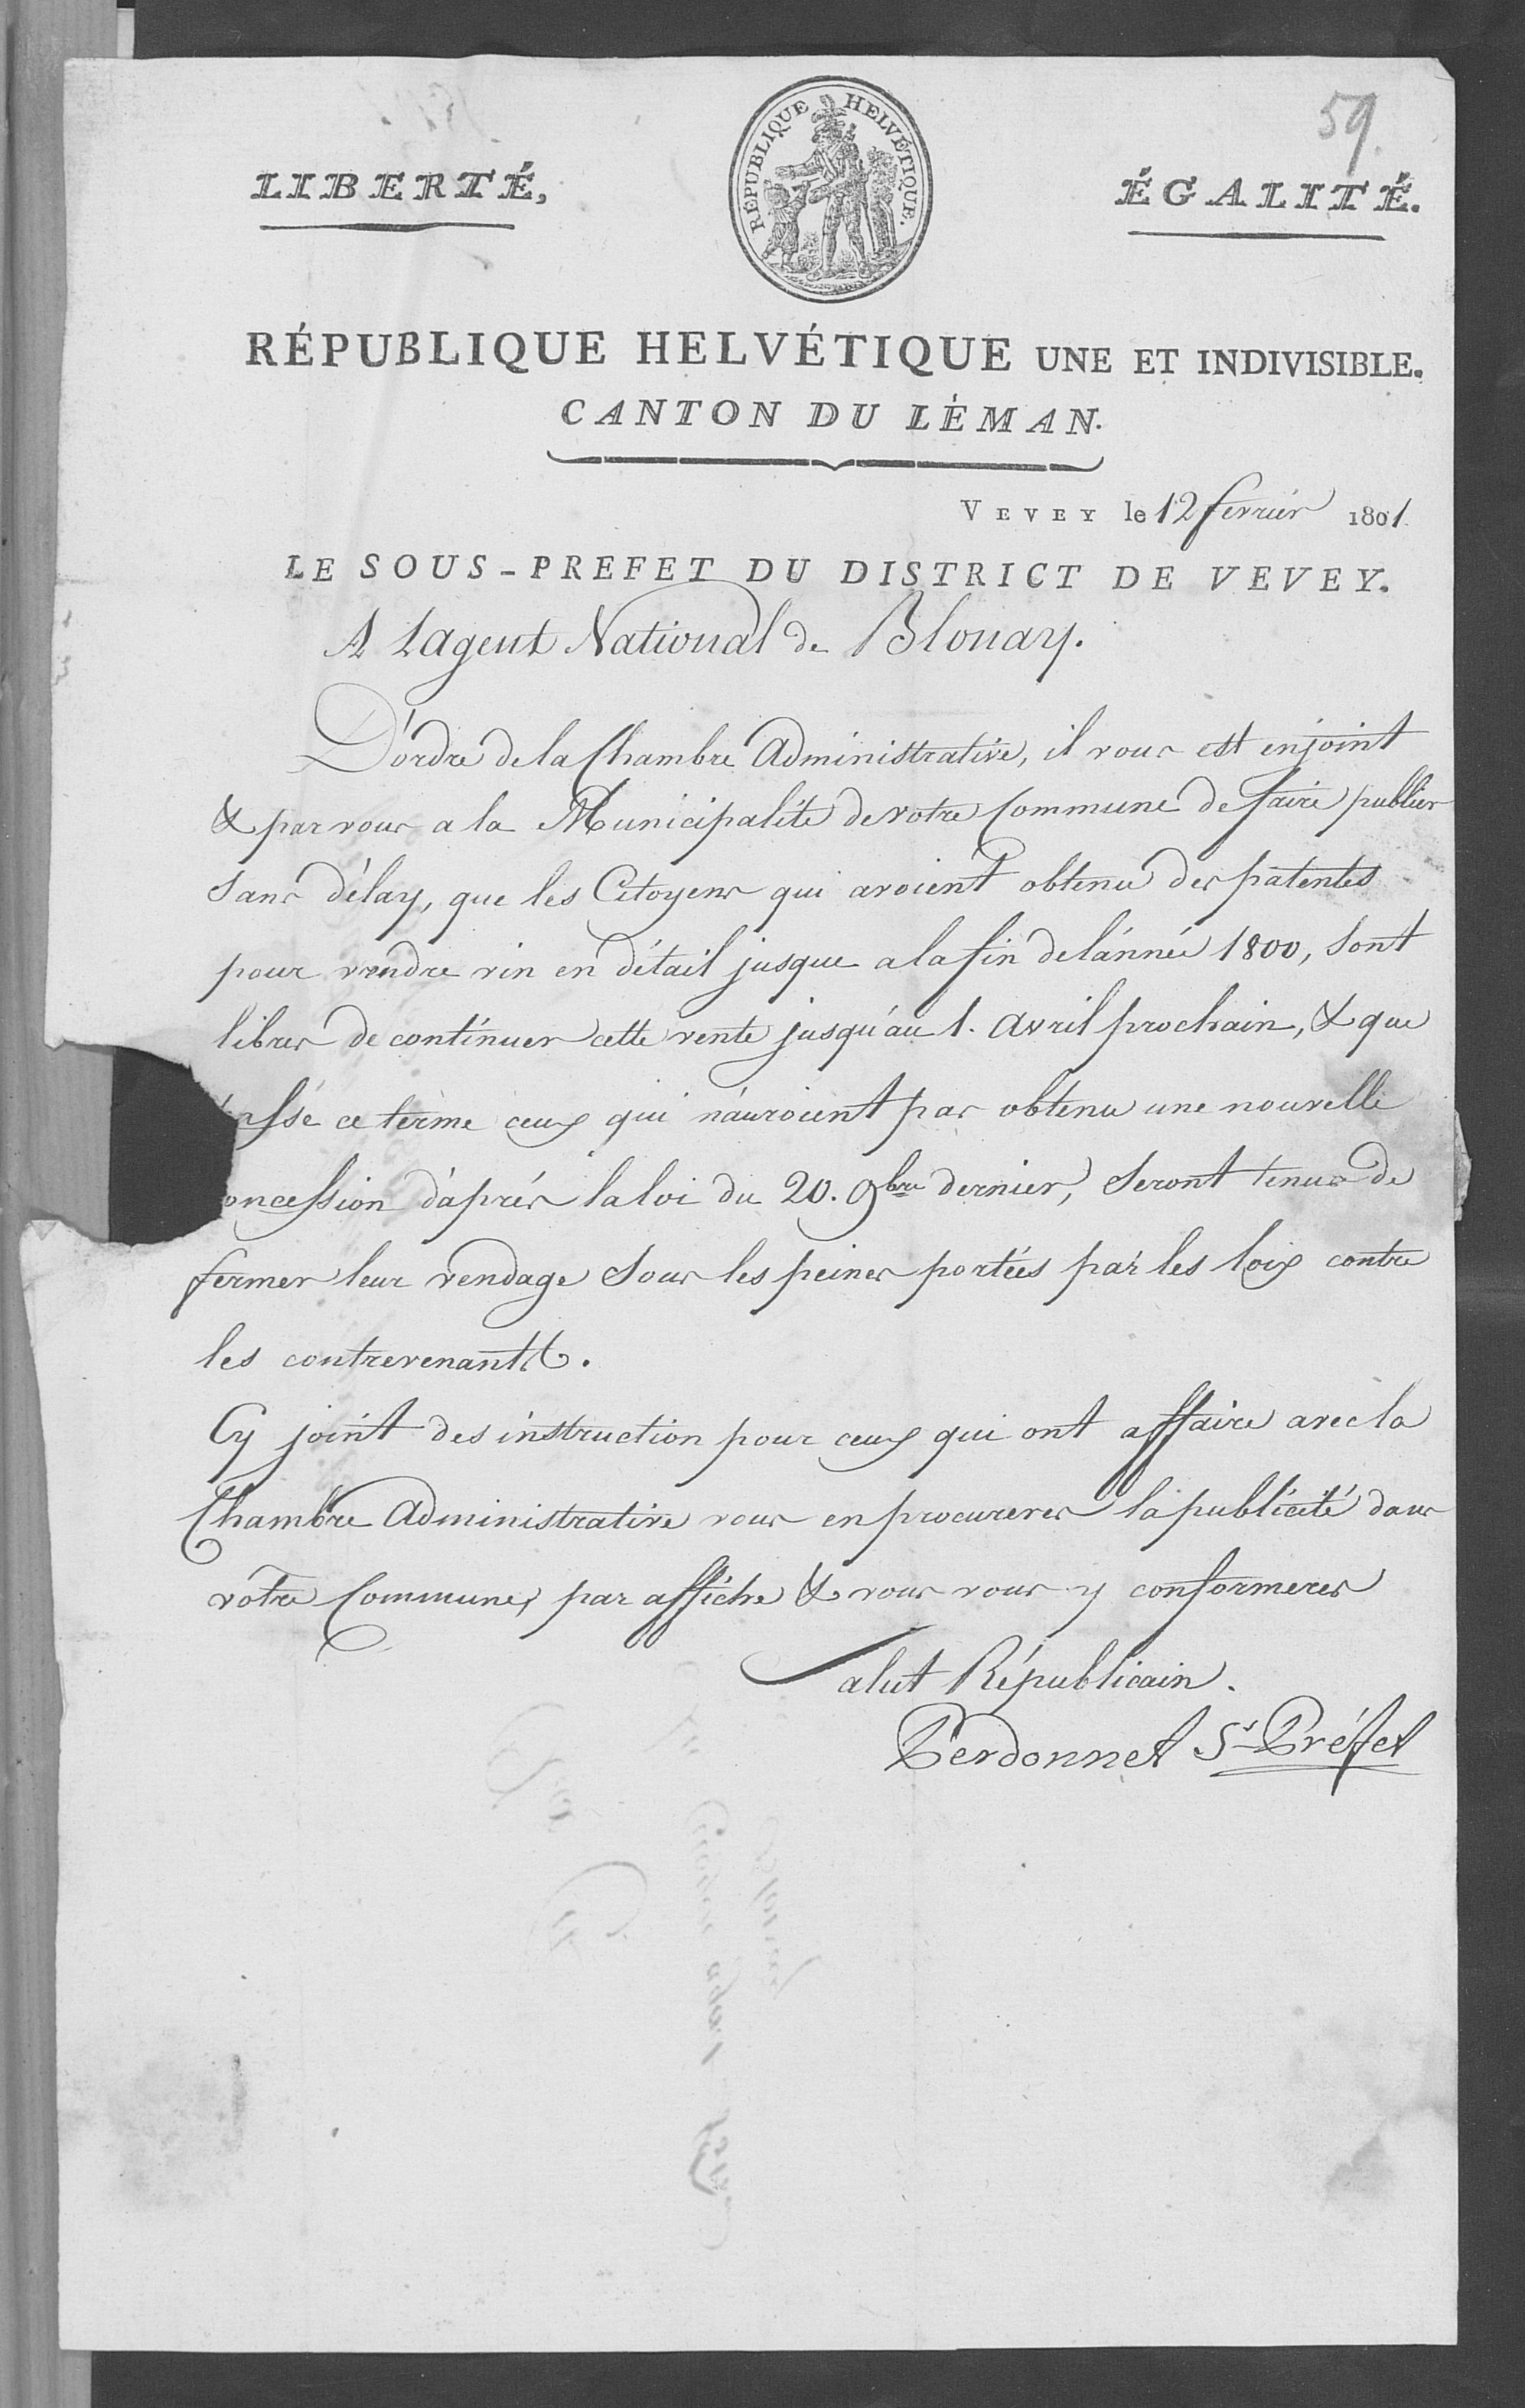 59.
LIBERTÉ,
RÉPUBLIQUE HELVÉTIQUE.
ÉGALITÉ.
RÉPUBLIQUE HELVÉTIQUE UNE ET INDIVISIBLE.
CANTON DU LÉMAN.
VEVEY le 12 fevrier 1801
LE SOUS-PREFET DU DISTRICT DE VEVEY.
A Lagent National de Blonay.
D'ordre de la Chambre Administrative, il vous est enjoint
& par vous a la Municipalité de votre Commune de faire publier
Sans délay, que les Citoyens qui avoient obtenu des patentes
pour vendre vin en détail jusque a la fin de l'année 1800, Sont
libres de continuer cette vente jusqu'au 1. Avril prochain, & que
assé ce terme ceux qui n'auroient pas obtenu une nouvelle
oncession d'aprés la loi du 20. 9bre dernier, Seront tenus de
fermer leur vendage Sous les peines portées par les loix contre
les contrevenants.
Cy joint des instruction pour ceux qui ont affaire avec la
Chambre Administrative vous en procureres la publicité dans
votre Commune, par affiche & vous vous y conformeres
Salut Républicain.
Perdonnet Ss Préfet